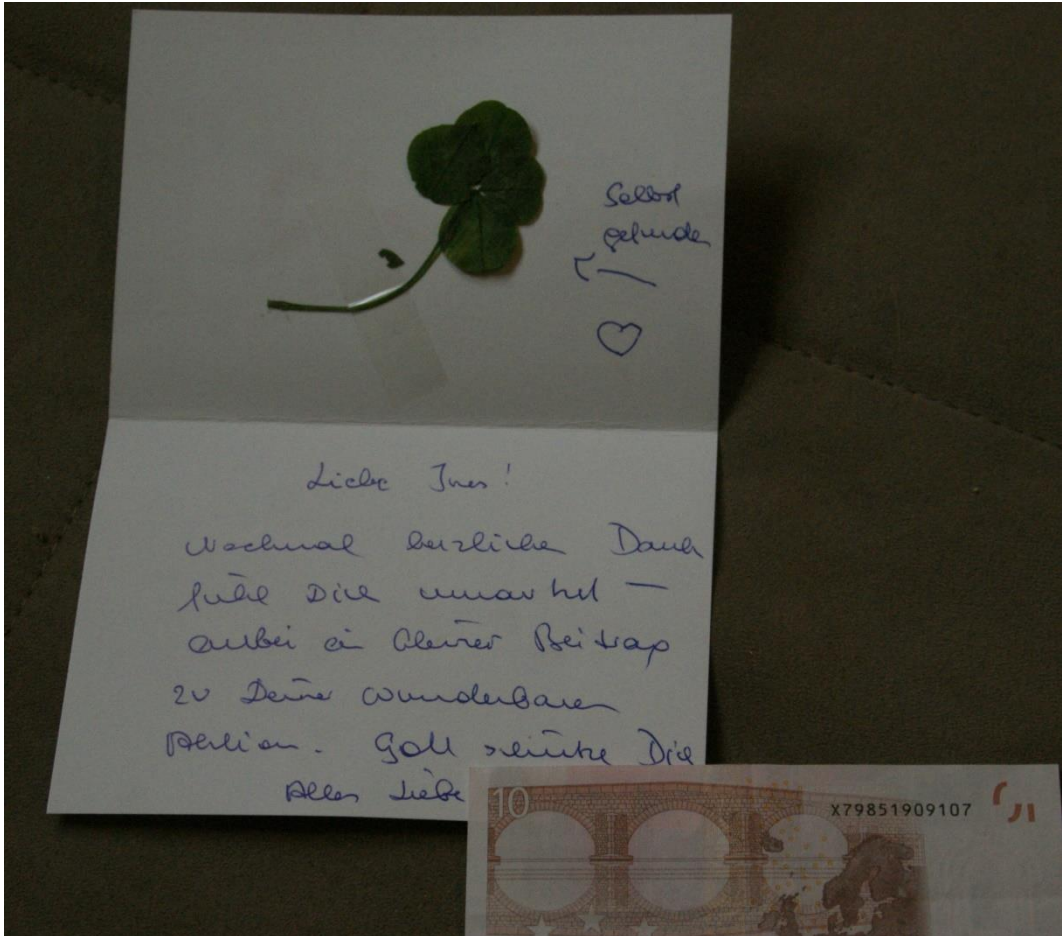 Selbst
gefunden
Liebe Ines!
Nochmal herzlichen Dank
fühl Dich umarmt —
anbei ein kleiner Beitrag
zu Deiner wunderbaren
Aktion. Gott schütze Dich
Alles Liebe
10
X79851909107